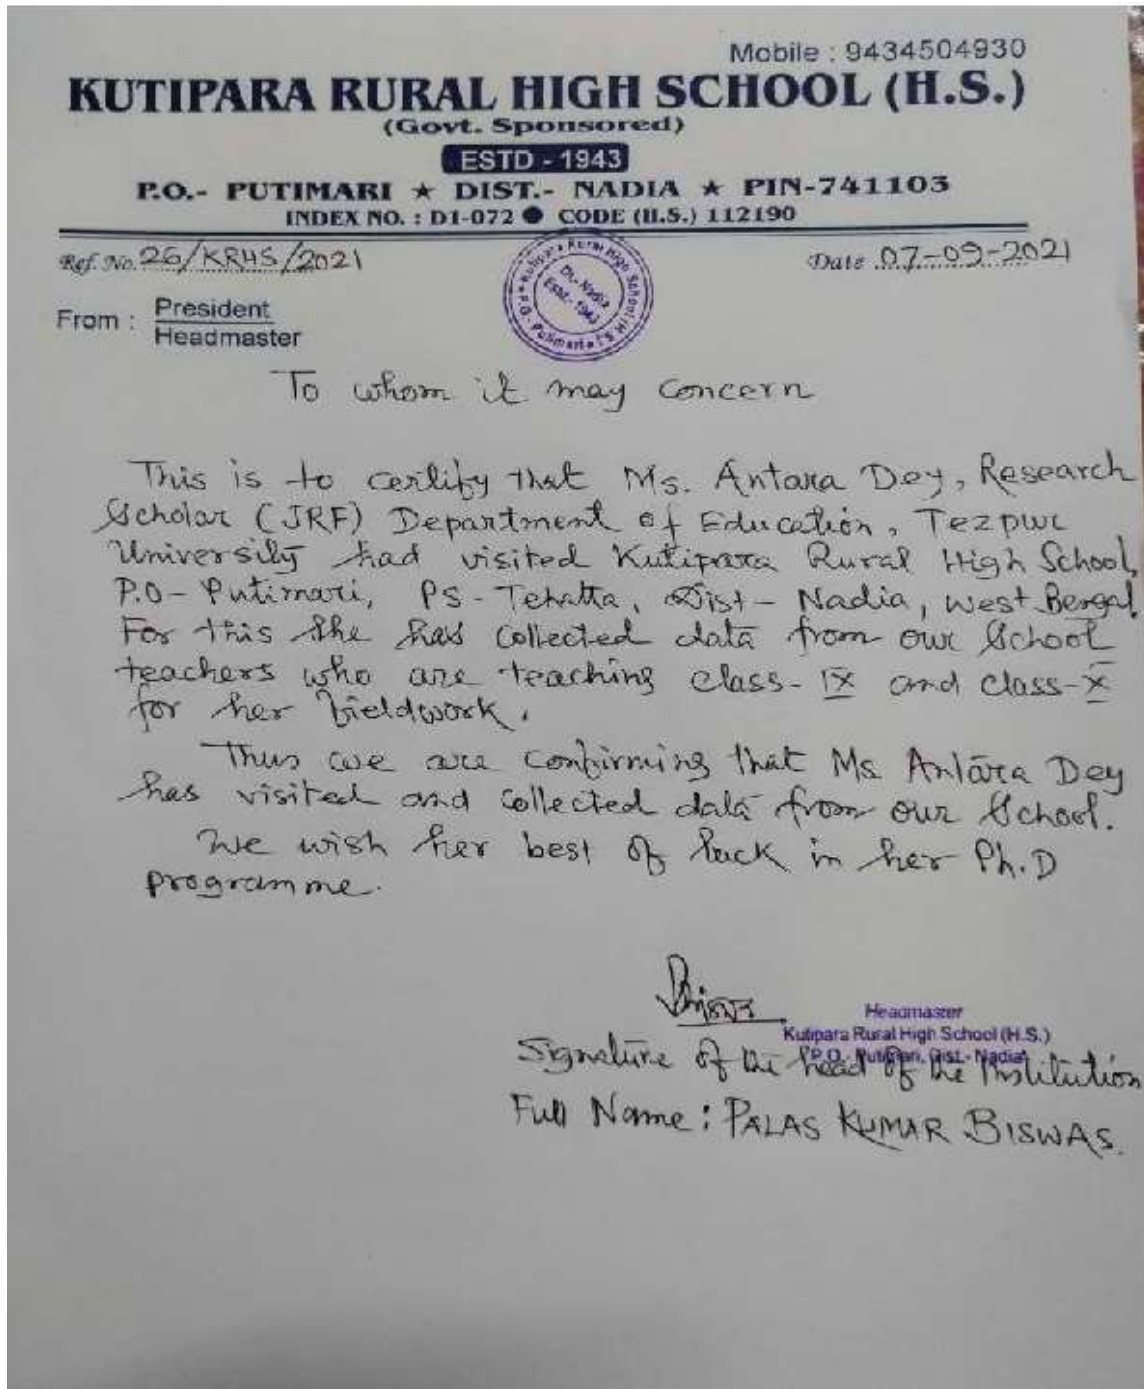 Mobile : 9434504930
KUTIPARA RURAL HIGH SCHOOL (H.S.)
(Govt. Sponsored)
ESTD - 1943
P.O.- PUTIMARI ★ DIST.- NADIA ★ PIN-741103
INDEX NO. : D1-072 ● CODE (H.S.) 112190
Ref. No. 26/KRHS/2021
Date 07-09-2021
Kutipara Rural High School (H.S.) ★ P.O.- Putimari ★
Dt.- Nadia
Estd.- 1943
From : President
Headmaster
To whom it may concern
This is to certify that Ms. Antara Dey, Research
Scholar (JRF) Department of Education, Tezpur
University had visited Kutipara Rural High School,
P.O- Putimari, PS- Tehatta, Dist- Nadia, West Bengal
For this she has collected data from our School
teachers who are teaching class- IX and class-X
for her fieldwork.
Thus we are confirming that Ms Antara Dey
has visited and collected data from our School.
We wish her best of luck in her Ph.D
programme.
Biswas
Headmaster
Kutipara Rural High School (H.S.)
P.O.- Putimari, Dist.- Nadia
Signature of the head of the Institution
Full Name : PALAS KUMAR BISWAS.